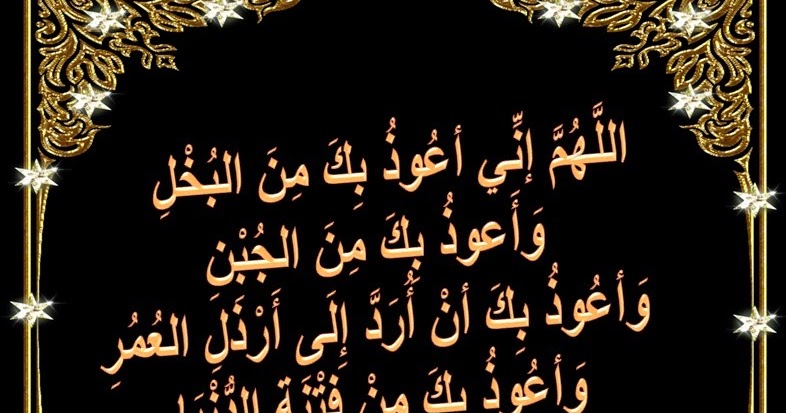 اللَّهُمَّ إنِّي أعُوذُ بِكَ مِنَ البُخْلِ
وَأَعوذُ بِكَ مِنَ الجُبْنِ
وَأعُوذُ بِكَ أنْ أُرَدَّ إِلَى أَرْذَلِ العُمُرِ
وَأعُوذُ بِكَ مِنْ فِتْنَةِ الدُّنْيَا